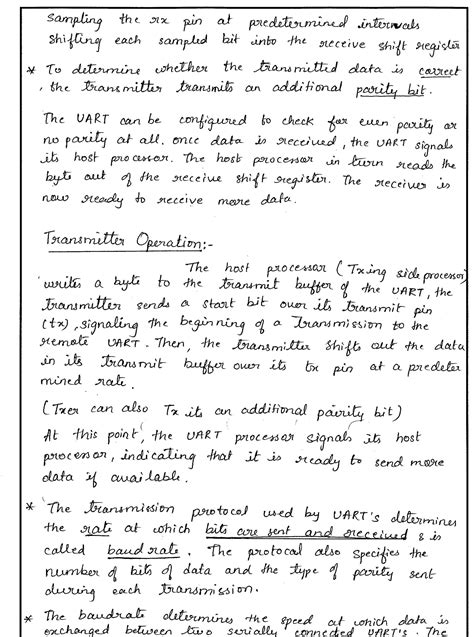 Sampling the rx pin at predetermined intervals
Shifting each sampled bit into the receive shift register
* To determine whether the transmitted data is correct
, the transmitter transmits an additional parity bit.
The UART can be configured to check for even parity or
no parity at all. once data is received, the UART signals
its host processor. The host processor in turn reads the
byte out of the receive shift register. The receiver is
now ready to receive more data.
Transmitter Operation:-
The host processor (Txing side processor)
writes a byte to the transmit buffer of the UART, the
transmitter sends a start bit over its transmit pin
(tx), signaling the beginning of a Transmission to the
remote UART. Then, the transmitter Shifts out the data
in its Transmit buffer over its tx pin at a predeter
mined rate.
(Txer can also Tx its an additional parity bit)
At this point, the UART processor signals its host
processor, indicating that it is ready to send more
data if available.
* The transmission protocol used by UART's determines
the rate at which bits are sent and received & is
called baud rate. The protocol also specifies the
number of bits of data and the type of parity sent
during each transmission.
* The baudrate determines the speed at which data is
exchanged between two serially connected UART's. The